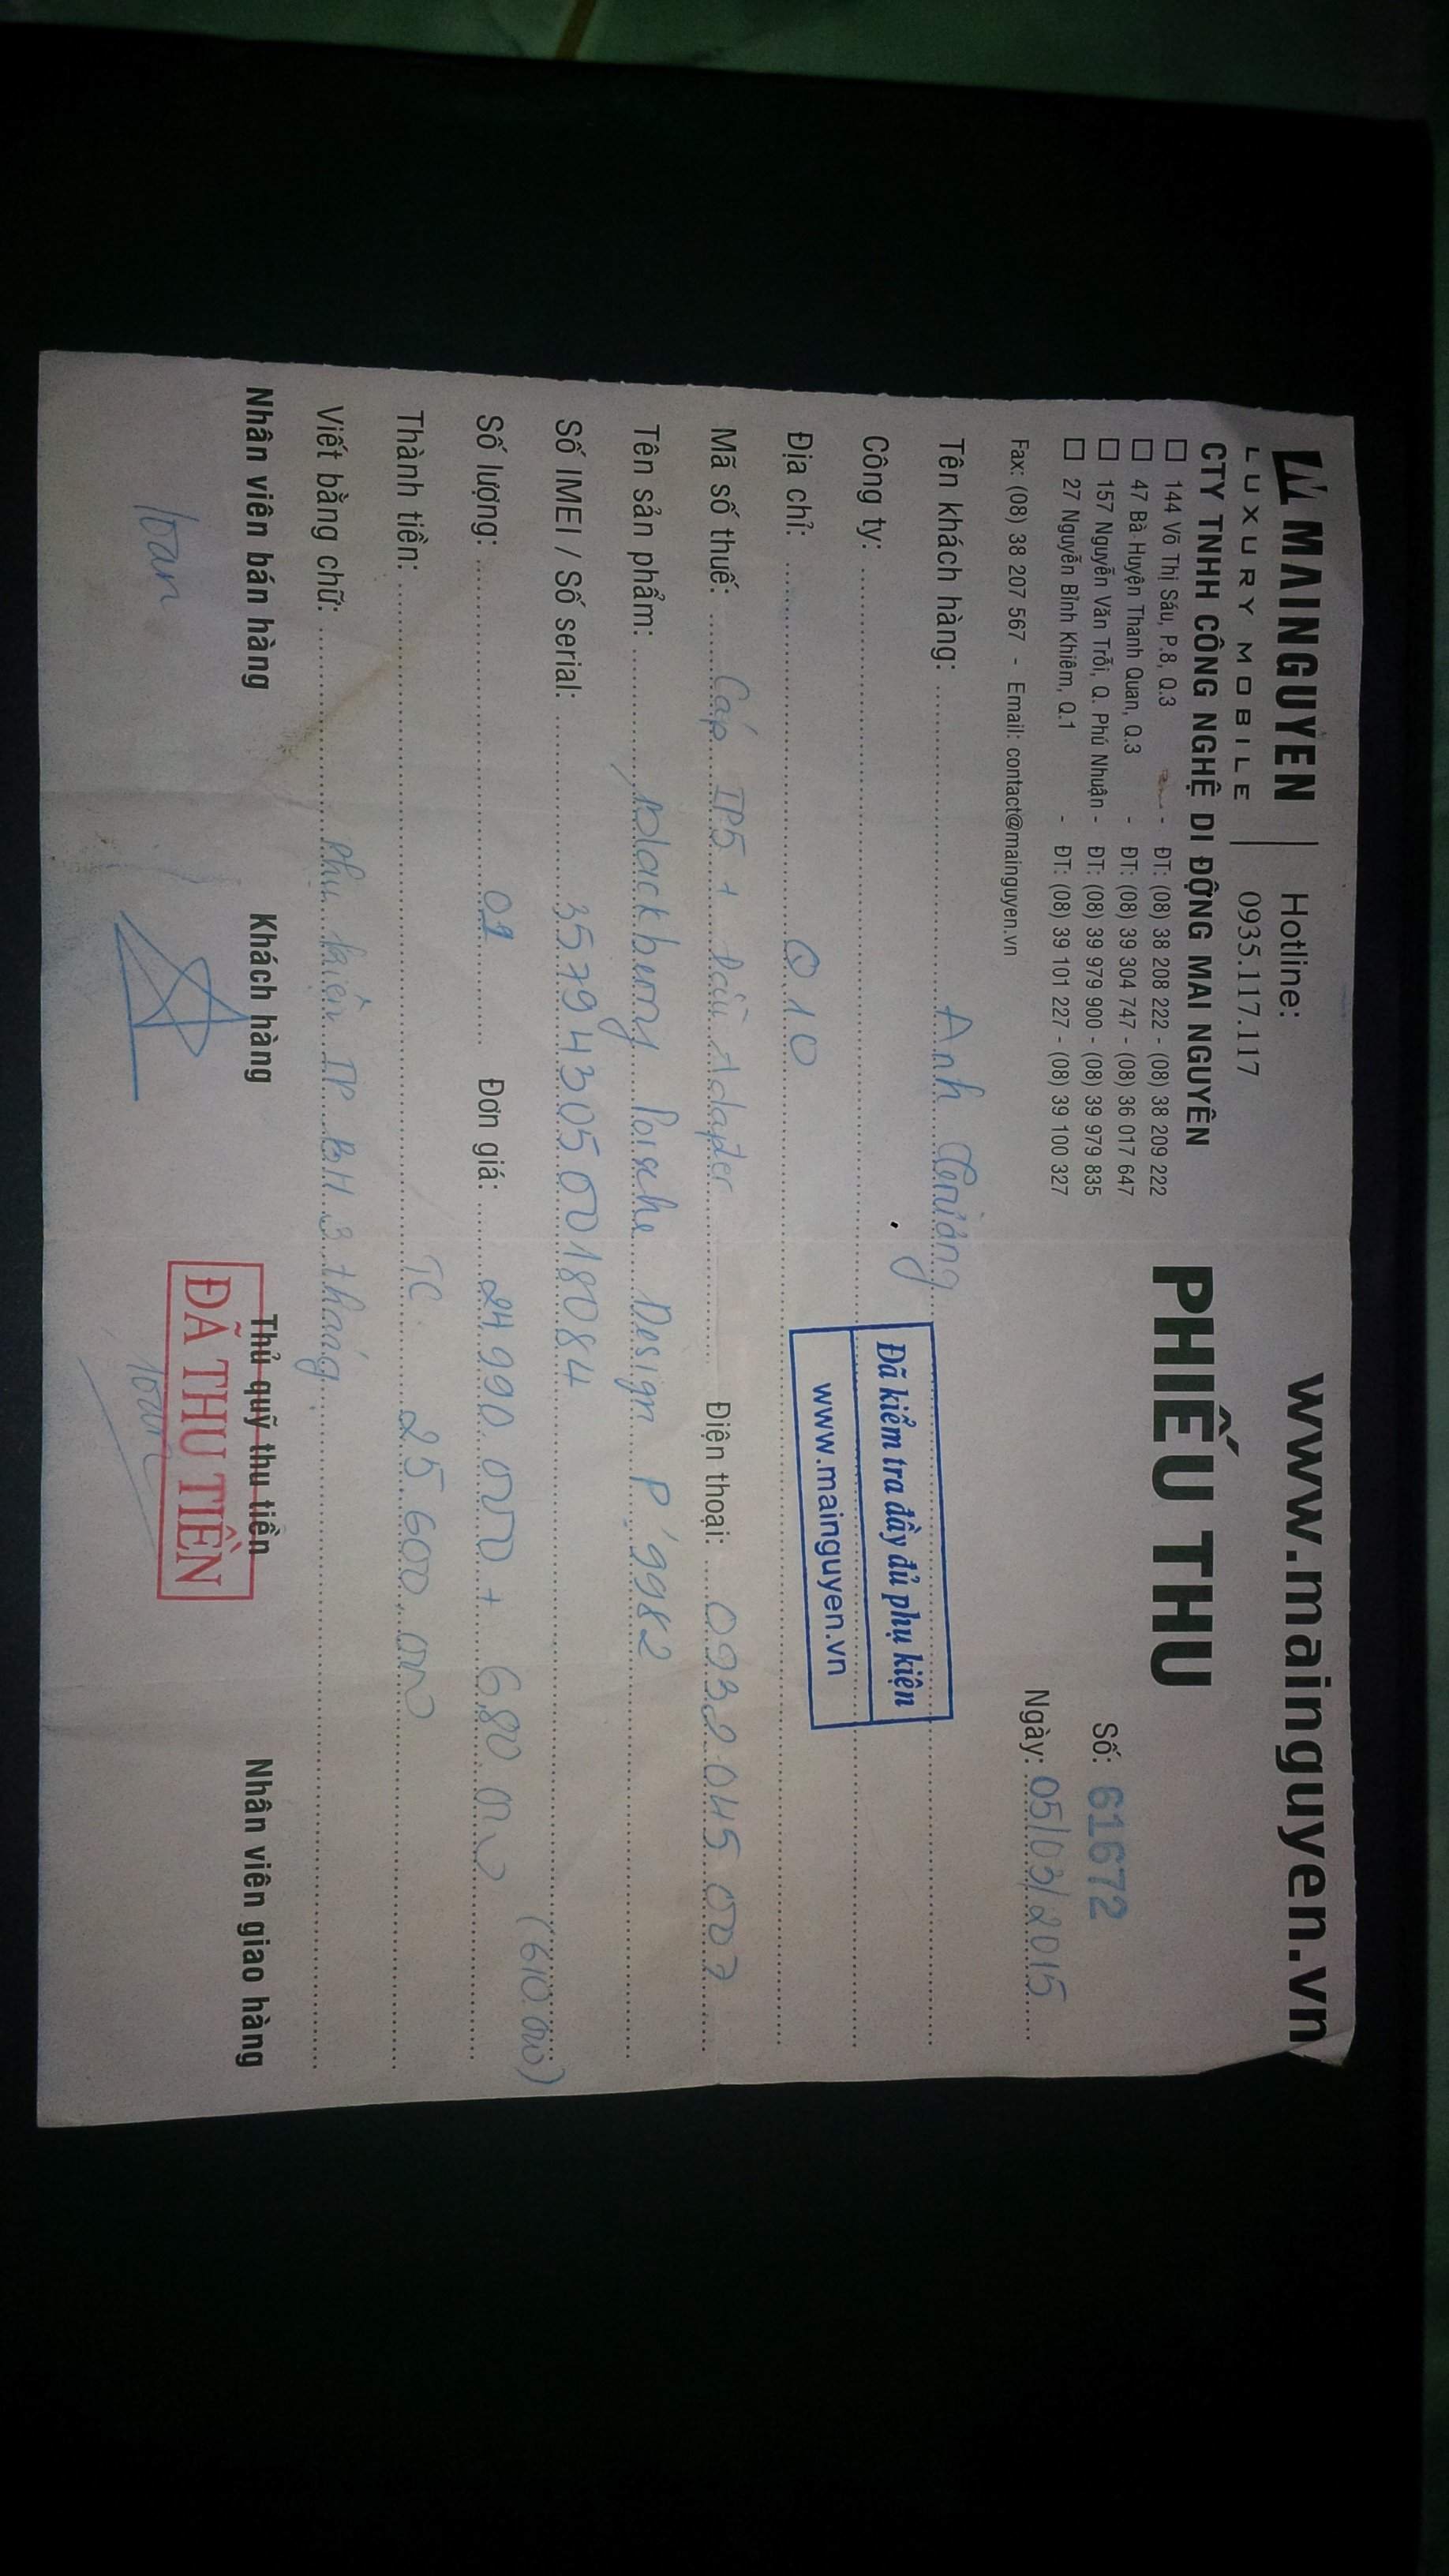 MAINGUYEN
LUXURY MOBILE
Hotline:
0935.117.117
www.mainguyen.vn
CTY TNHH CÔNG NGHỆ DI ĐỘNG MAI NGUYÊN
144 Võ Thị Sáu, P.8, Q.3 - ĐT: (08) 38 208 222 - (08) 38 209 222
47 Bà Huyện Thanh Quan, Q.3 - ĐT: (08) 39 304 747 - (08) 36 017 647
157 Nguyễn Văn Trỗi, Q. Phú Nhuận - ĐT: (08) 39 979 900 - (08) 39 979 835
27 Nguyễn Bỉnh Khiêm, Q.1 - ĐT: (08) 39 101 227 - (08) 39 100 327
Fax: (08) 38 207 567 - Email: contact@mainguyen.vn
PHIẾU THU
Số: 61672
Ngày: 05/03/2015
Tên khách hàng: Anh
Công ty:
Đã kiểm tra đầy đủ phụ kiện
www.mainguyen.vn
Địa chỉ: Q 10
Mã số thuế: Cáp IP5 + Adapter Điện thoại: 0932 045 007
Tên sản phẩm: blackberry Porsche Design P'9982
Số IMEI / Số serial: 357943050018084
(610.000)
Số lượng: 01 Đơn giá: 24.990.000 + 680.000
Thành tiền: TC 25.600.000
Viết bằng chữ: phụ kiện IP BH 3 tháng
Nhân viên bán hàng Khách hàng Thủ quỹ thu tiền Nhân viên giao hàng
ĐÃ THU TIỀN